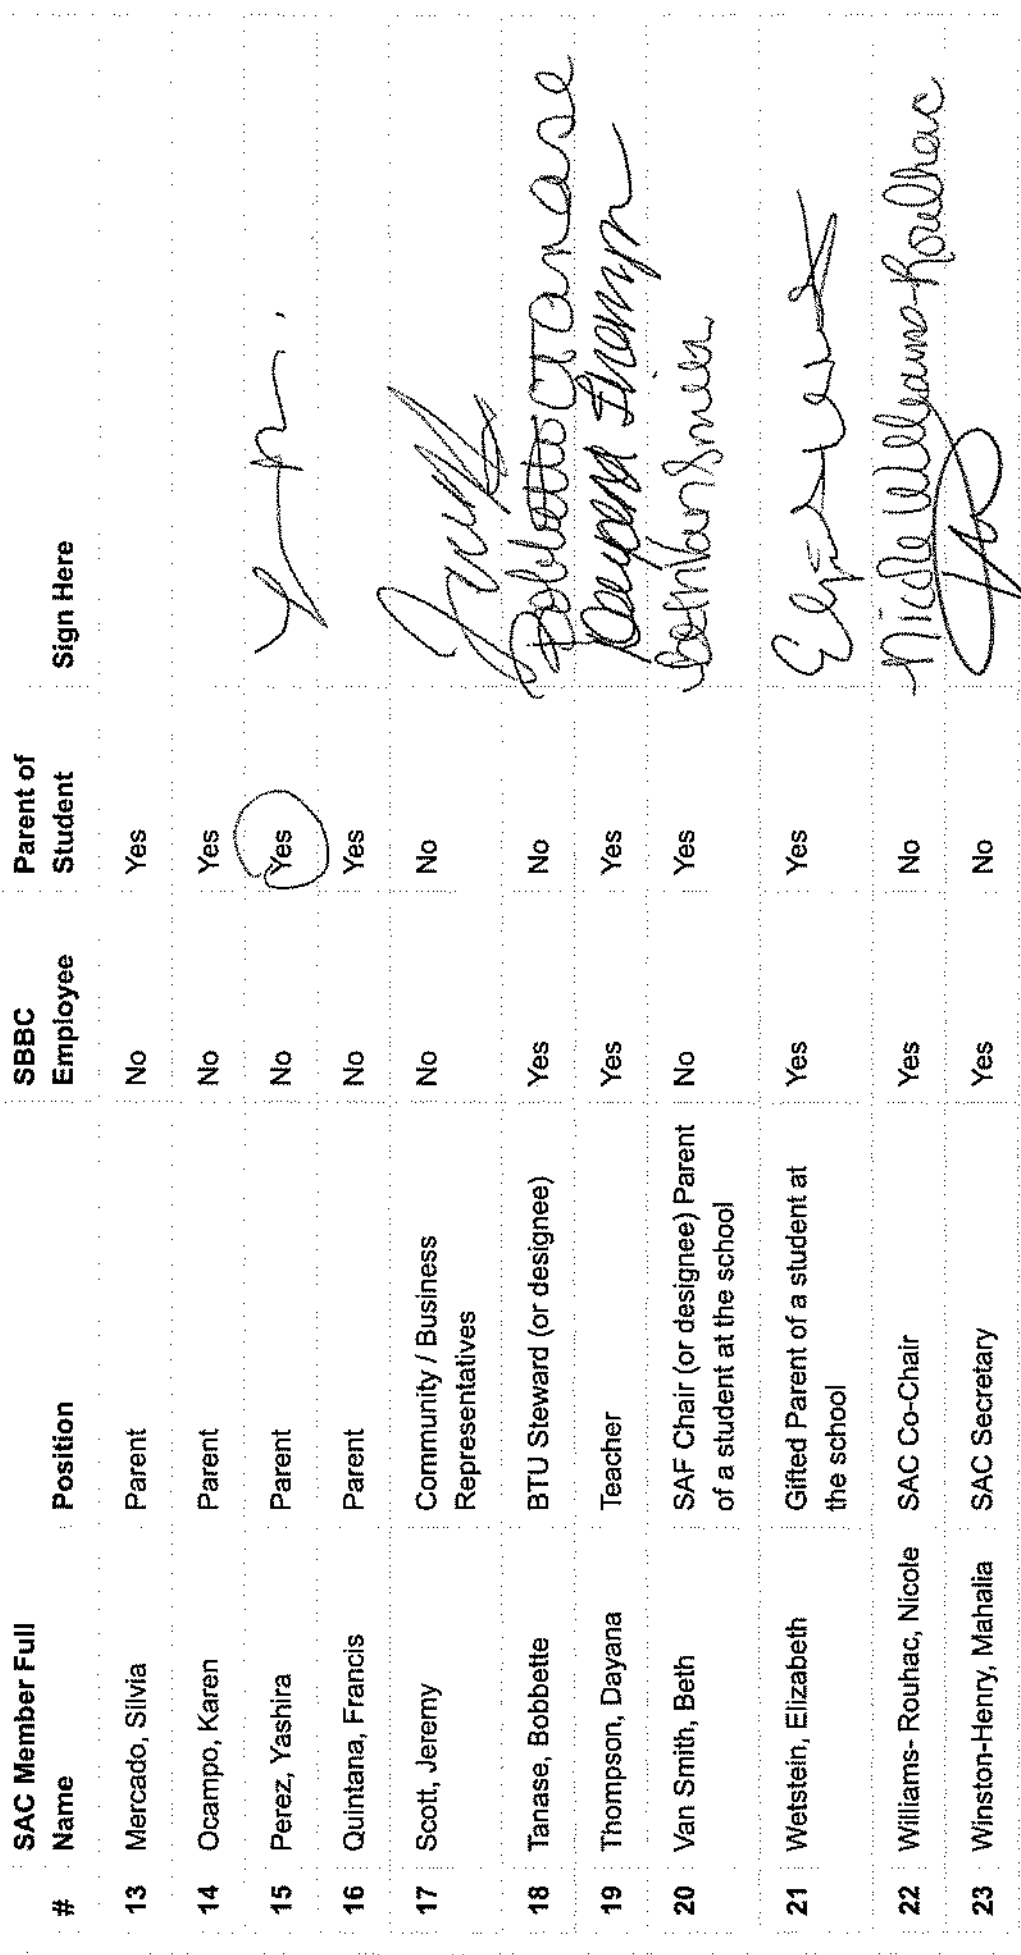 # SAC Member Full Name Position SBBC Employee Parent of Student Sign Here
13 Mercado, Silvia Parent No Yes
14 Ocampo, Karen Parent No Yes
15 Perez, Yashira Parent No Yes
16 Quintana, Francis Parent No Yes
17 Scott, Jeremy Community / Business Representatives No No
18 Tanase, Bobbette BTU Steward (or designee) Yes No Bobbette Tanase
19 Thompson, Dayana Teacher Yes Yes
20 Van Smith, Beth SAF Chair (or designee) Parent of a student at the school No Yes Beth Van Smith
21 Wetstein, Elizabeth Gifted Parent of a student at the school Yes Yes
22 Williams- Rouhac, Nicole SAC Co-Chair Yes No Nicole Williams-Roulhac
23 Winston-Henry, Mahalia SAC Secretary Yes No